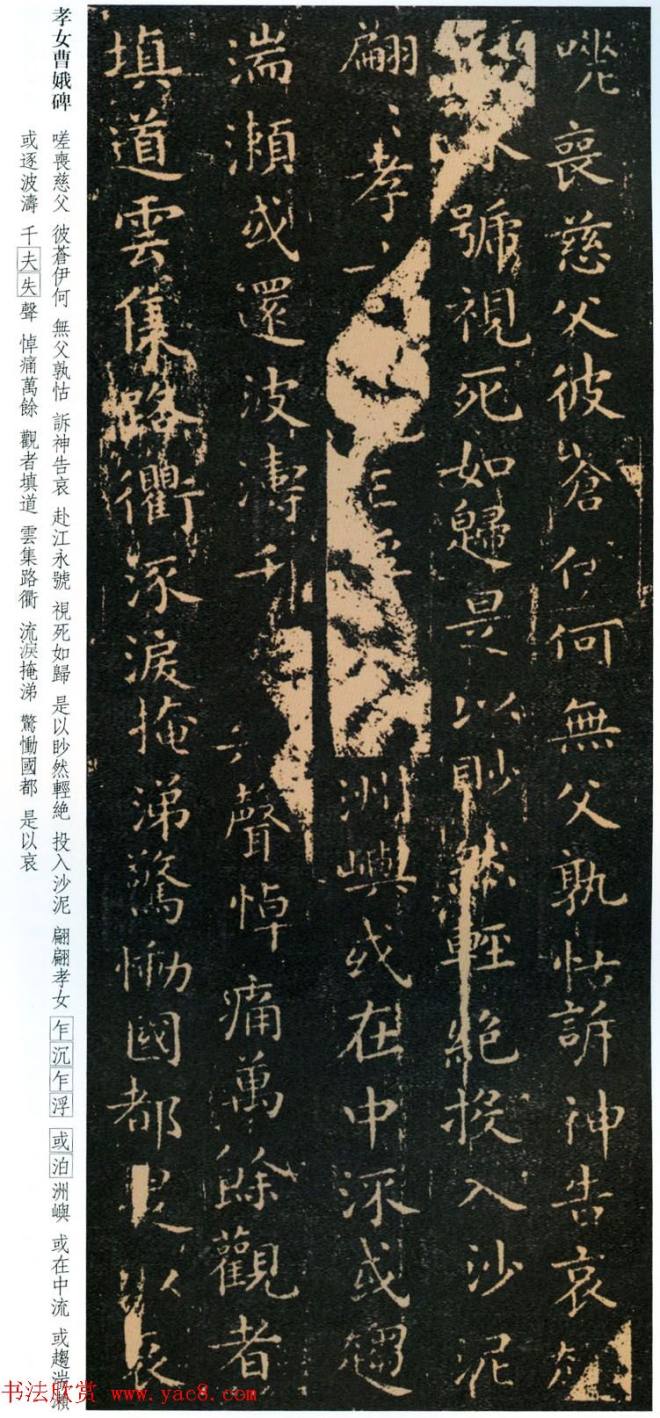 嗟喪慈父彼蒼伊何無父孰怙訴神告哀赴
號視死如歸是以眇然輕絕投入沙泥
翩〻孝洲嶼或在中流或趨
湍瀨或還波濤千聲悼痛萬餘觀者
填道雲集路衢流淚掩涕驚慟國都是以哀
孝女曹娥碑 嗟喪慈父 彼蒼伊何 無父孰怙 訴神告哀 赴江永號 視死如歸 是以眇然輕絶 投入沙泥 翩翩孝女 乍沉乍浮 或泊洲嶼 或在中流 或趨湍瀨
或逐波濤 千夫失聲 悼痛萬餘 觀者填道 雲集路衢 流淚掩涕 驚慟國都 是以哀
书法欣赏 www.yac8.com